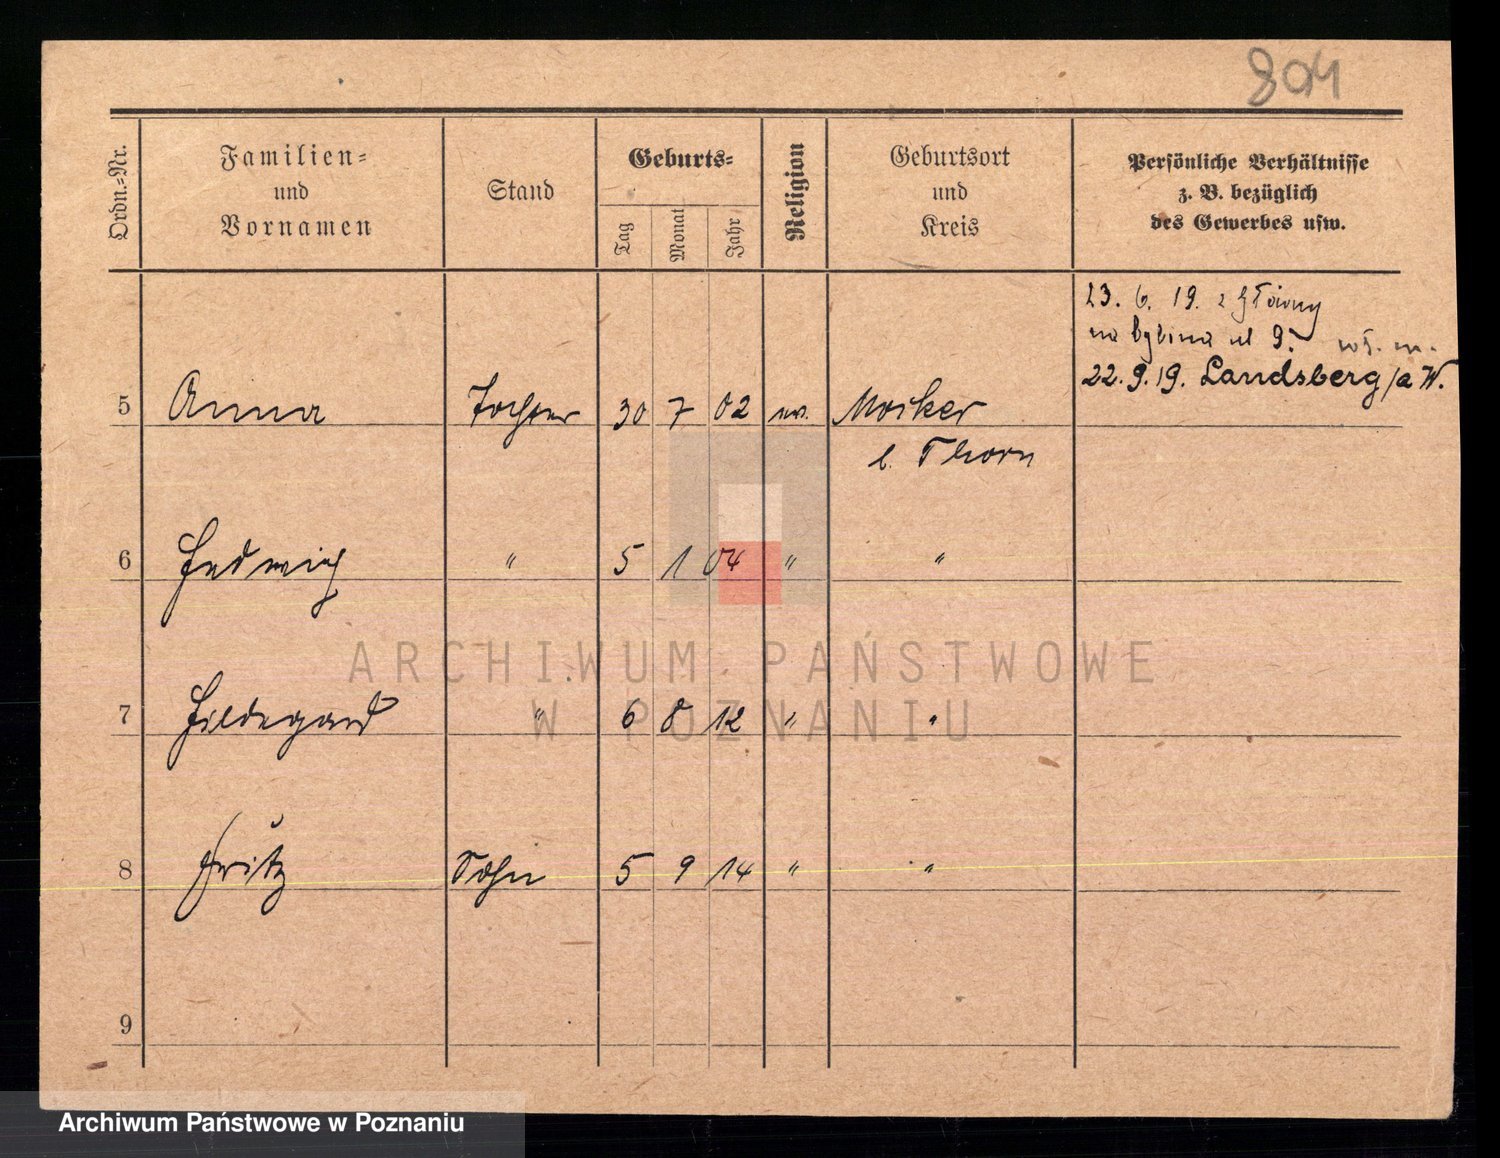 804
Ordn.=Nr.
Familien=
und
Vornamen
Stand
Geburts=
Tag
Monat
Jahr
Religion
Geburtsort
und
Kreis
Persönliche Verhältnisse
z. B. bezüglich
des Gewerbes usw.
23. 6. 19. z Główny
na ul 9.
22. 9. 19. Landsberg/a W.
5 Anna Tochter 30 7 02 ev. Mocker
b. Thorn
6 Hedwig " 5 1 04 " "
7 Hildegard " 6 8 12 " "
8 Fritz Sohn 5 9 14 " "
9
ARCHIWUM PAŃSTWOWE
W POZNANIU
Archiwum Państwowe w Poznaniu